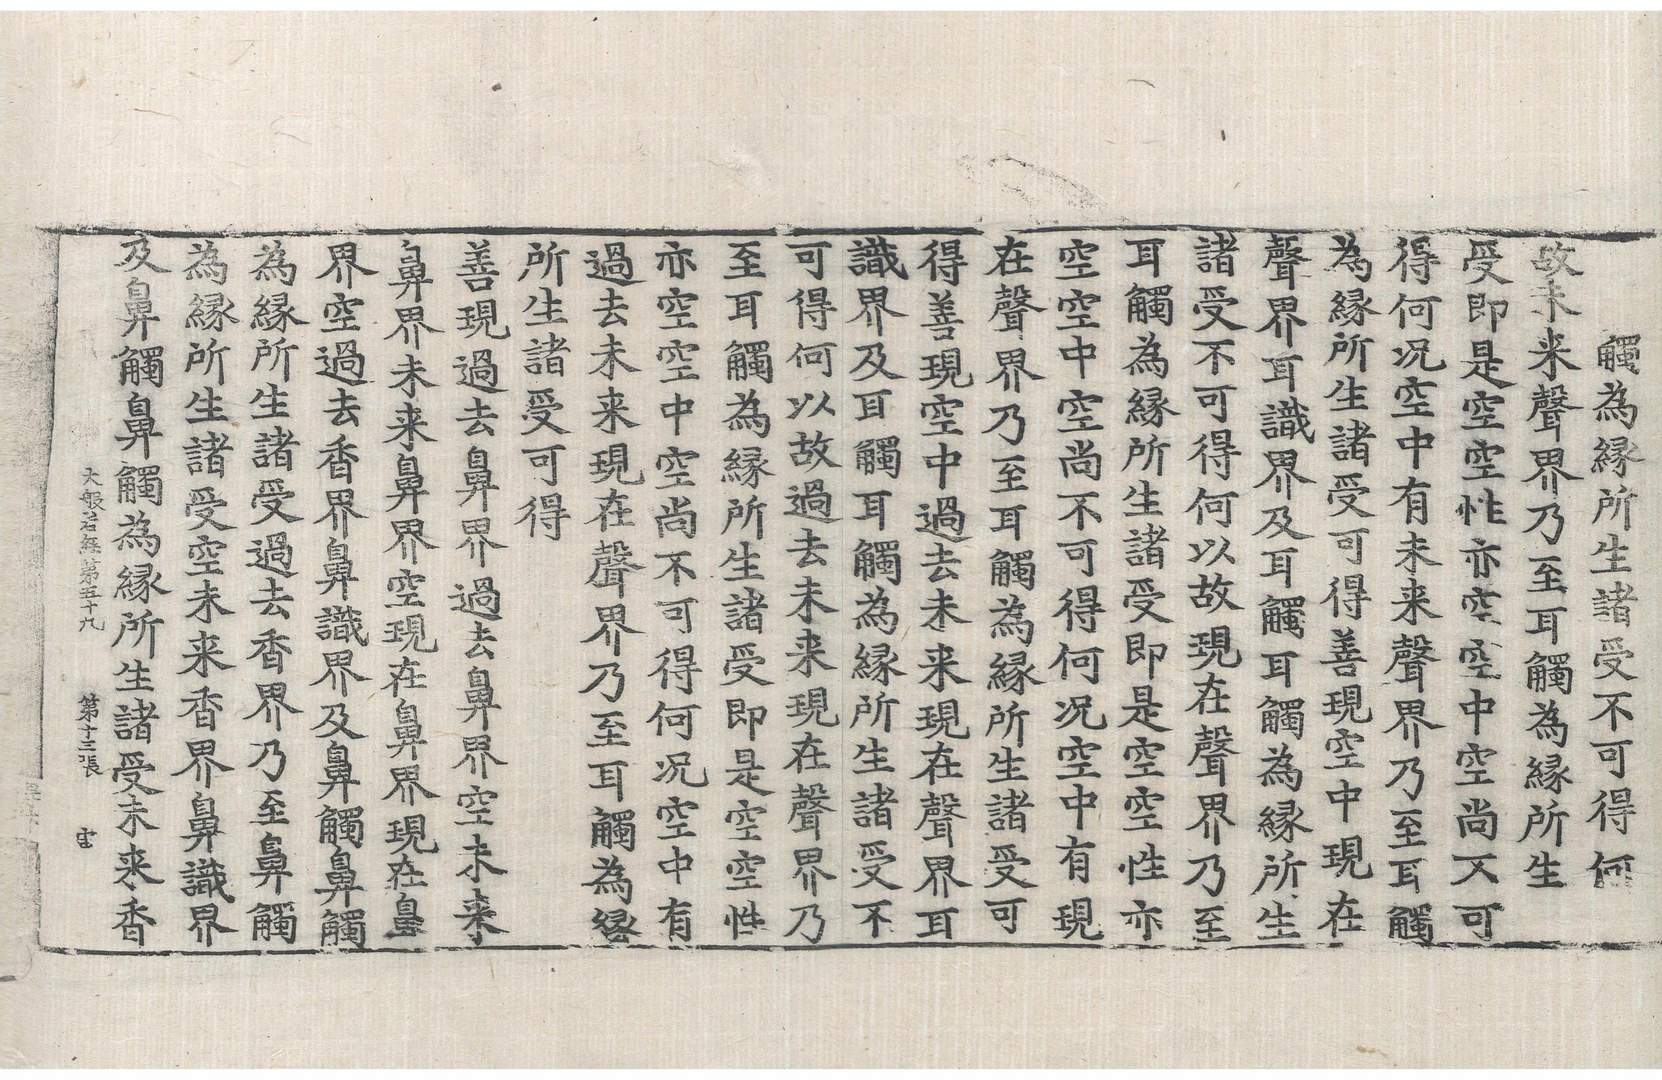 觸為縁所生諸受不可得何
故未来聲界乃至耳觸為縁所生
受即是空空性亦空空中空尚不可
得何况空中有未来聲界乃至耳觸
為縁所生諸受可得善現空中現在
聲界耳識界及耳觸耳觸為縁所生
諸受不可得何以故現在聲界乃至
耳觸為縁所生諸受即是空空性亦
空空中空尚不可得何况空中有現
在聲界乃至耳觸為縁所生諸受可
得善現空中過去未来現在聲界耳
識界及耳觸耳觸為縁所生諸受不
可得何以故過去未来現在聲界乃
至耳觸為縁所生諸受即是空空性
亦空空中空尚不可得何况空中有
過去未来現在聲界乃至耳觸為縁
所生諸受可得
善現過去鼻界過去鼻界空未来
鼻界未来鼻界空現在鼻界現在鼻
界空過去香界鼻識界及鼻觸鼻觸
為縁所生諸受過去香界乃至鼻觸
為縁所生諸受空未来香界鼻識界
及鼻觸鼻觸為縁所生諸受未来香
大般若經第五十九 第十三張